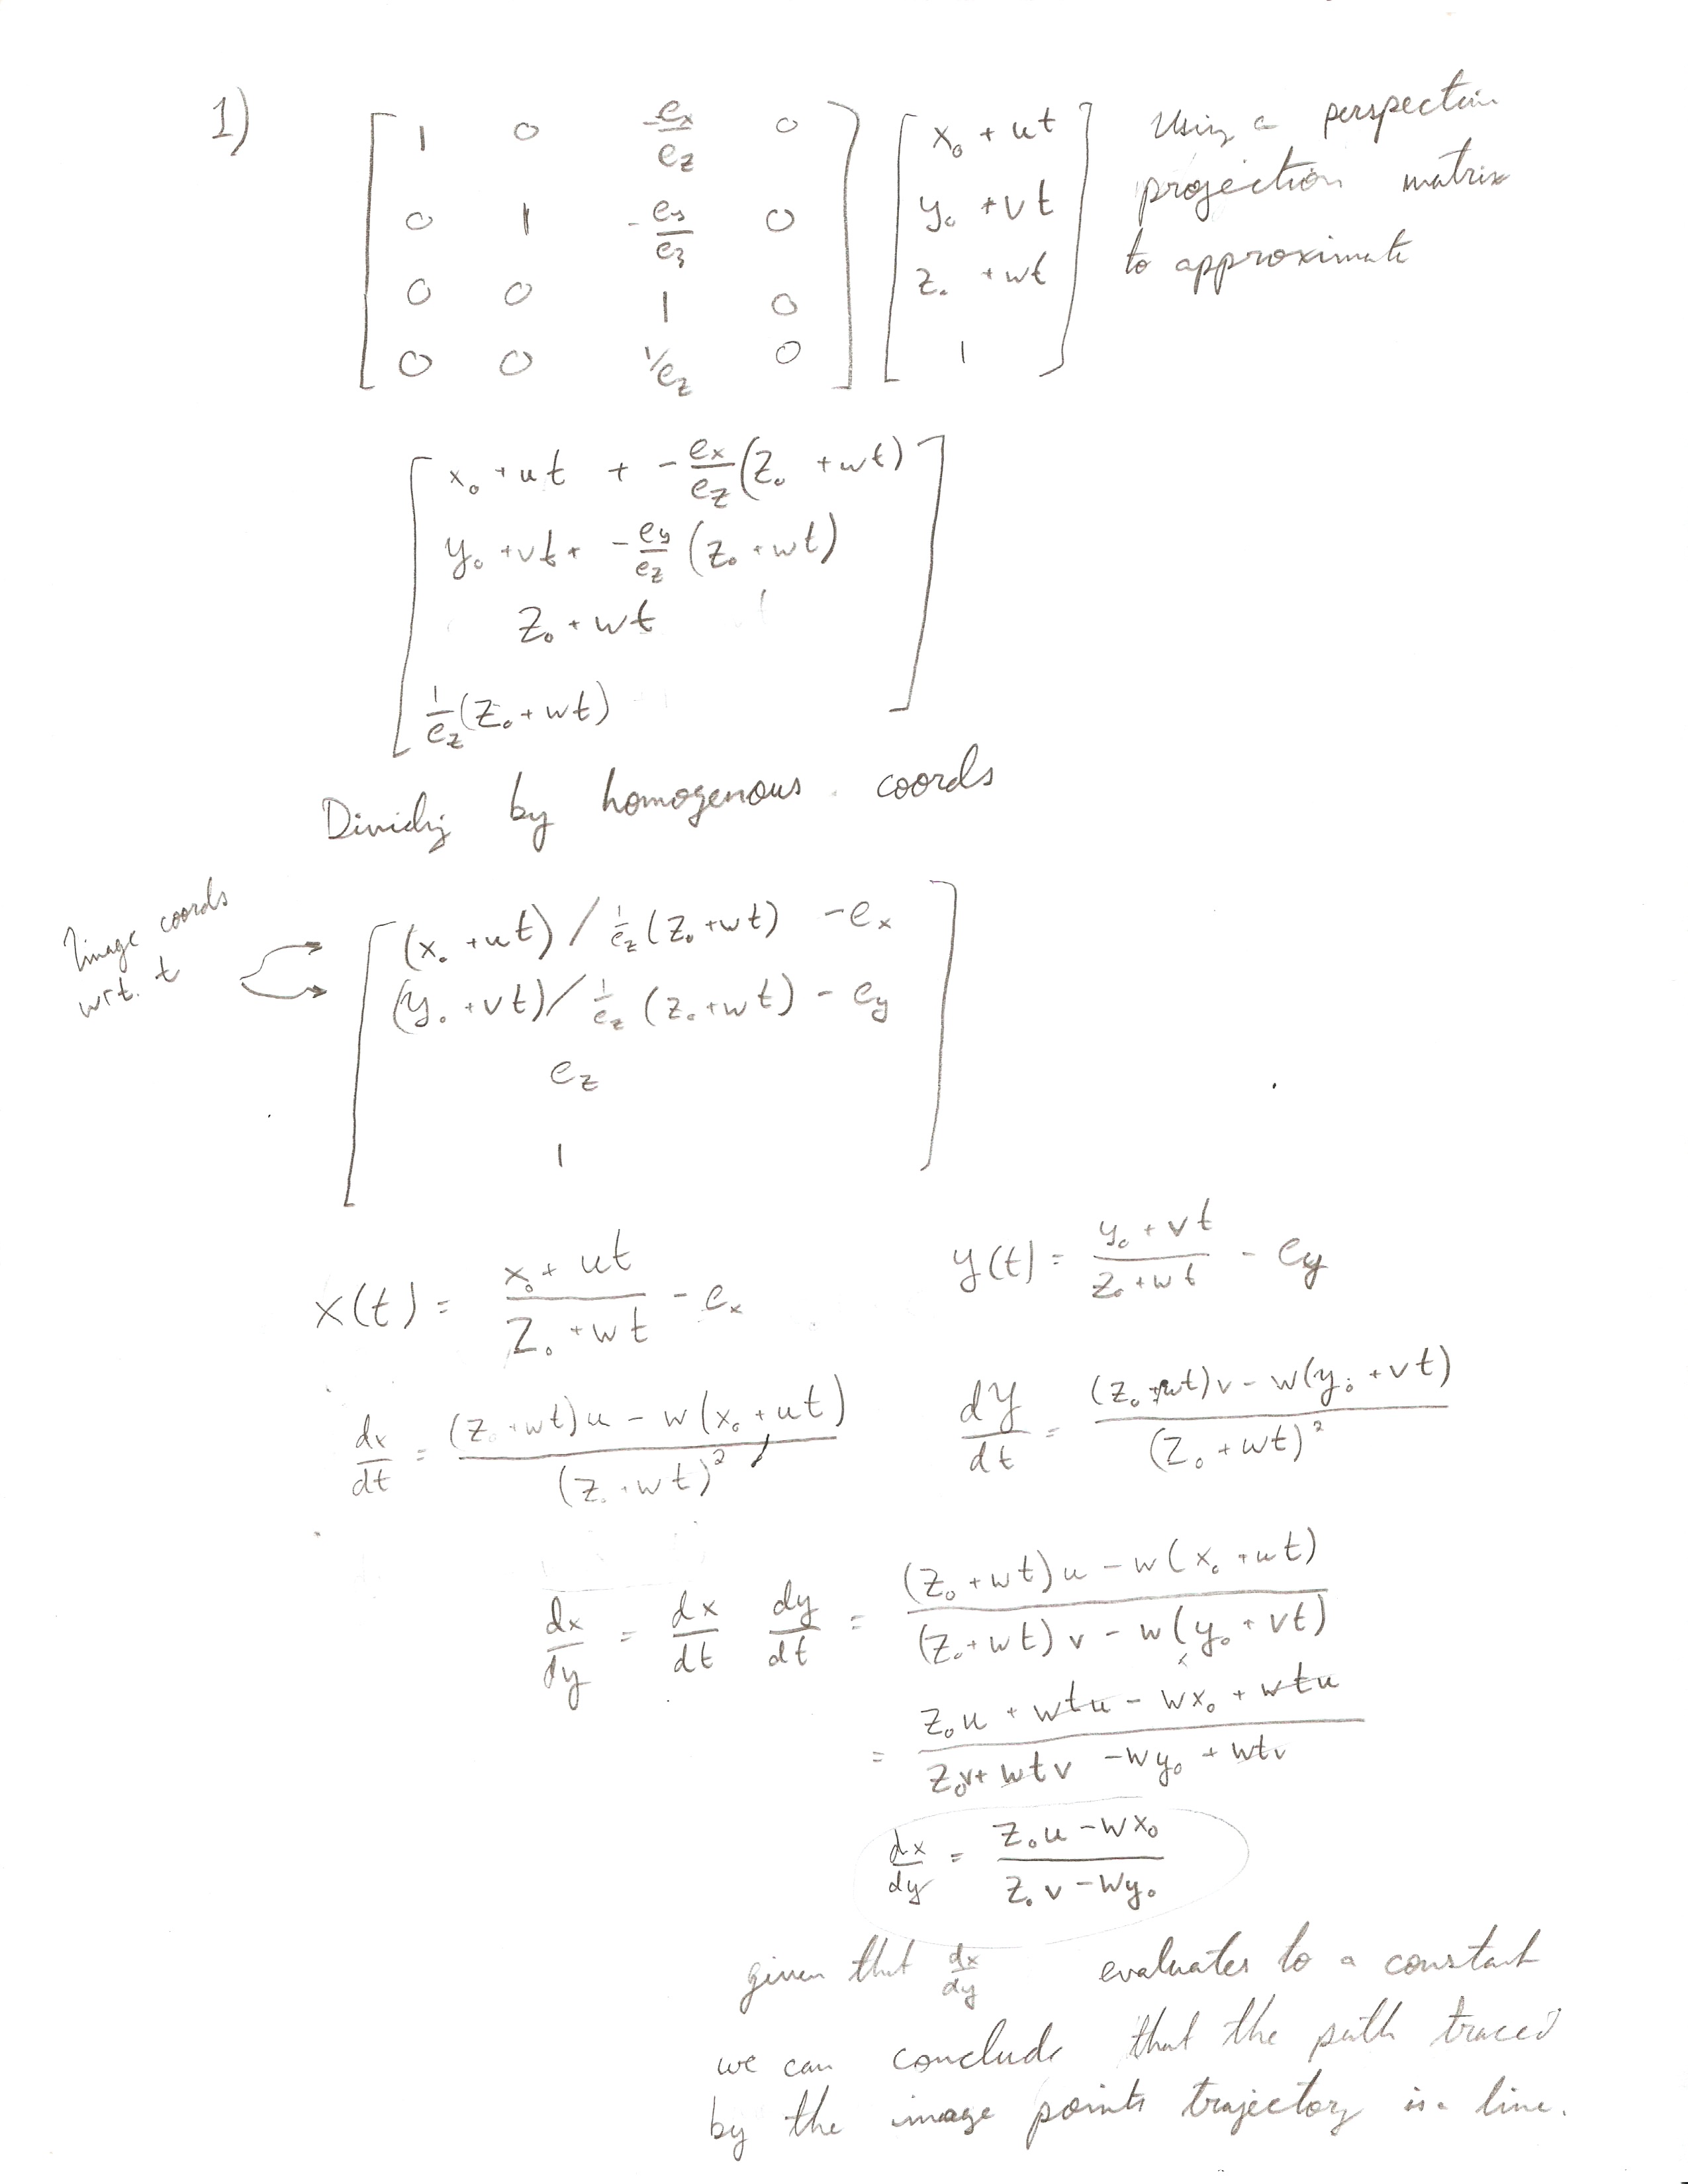 1)
[ 1 0 -e_x/e_z 0 ] [ x_0 + ut ] Using a perspection
[ 0 1 -e_y/e_z 0 ] [ y_0 + vt ] projection matrix
[ 0 0 1 0 ] [ z_0 + wt ] to approximate
[ 0 0 1/e_z 0 ] [ 1 ]
[ x_0 + ut + -e_x/e_z (z_0 + wt) ]
[ y_0 + vt + -e_y/e_z (z_0 + wt) ]
[ z_0 + wt ]
[ 1/e_z (z_0 + wt) ]
Dividing by homogenous coords
Image coords
wrt. t
[ (x_0 + ut) / 1/e_z (z_0 + wt) - e_x ]
[ (y_0 + vt) / 1/e_z (z_0 + wt) - e_y ]
[ e_z ]
[ 1 ]
x(t) = (x_0 + ut)/(z_0 + wt) - e_x y(t) = (y_0 + vt)/(z_0 + wt) - e_y
dx/dt = ((z_0 + wt)u - w(x_0 + ut))/(z_0 + wt)^2 dy/dt = ((z_0 + wt)v - w(y_0 + vt))/(z_0 + wt)^2
dx/dy = dx/dt dy/dt = ((z_0 + wt)u - w(x_0 + ut))/((z_0 + wt)v - w(y_0 + vt))
= (z_0u + wtu - wx_0 + wtu)/(z_0v + wtv - wy_0 + wtv)
dx/dy = (z_0u - wx_0)/(z_0v - wy_0)
given that dx/dy evaluates to a constant
we can conclude that the path traced
by the image points trajectory is a line.